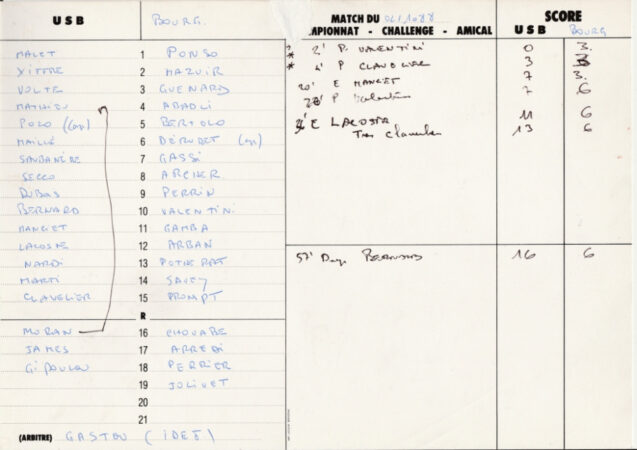 USB BOURG.
MALET 1 PONSO
VITTRE 2 MAZUIR
VOLTE 3 GUENARD
MATHIEU 4 ABADLI
POLO (cap) 5 BERTOLO
MAILLÉ 6 DÉRUDET (cap)
SAUBANÈRE 7 GASSI
SECCO 8 ARCHER
DUBOS 9 PERRIN
BERNARD 10 VALENTINI
MANCET 11 GAMBA
LACOSTE 12 ARBAN
NARDI 13 POTHERAT
MARTI 14 SAVEY
CLAVELIER 15 PROMPT
R
MORAN 16 CHOUABE
JAMES 17 ARREDI
GIPOULOU 18 PERRIER
19 JOLIVET
20
21
(ARBITRE) GASTOU (IDEJ)
MATCH DU SCORE
MPIONNAT - CHALLENGE - AMICAL USB BOURG
* 2' P. VALENTINI 0 3.
* P CLAVELIER 3 3
20' E MANCET 7 3.
P Valentini 7 6
E LACOSTE 11 6
Tran Clavelier 13 6
57' Drop BERNARD 16 6